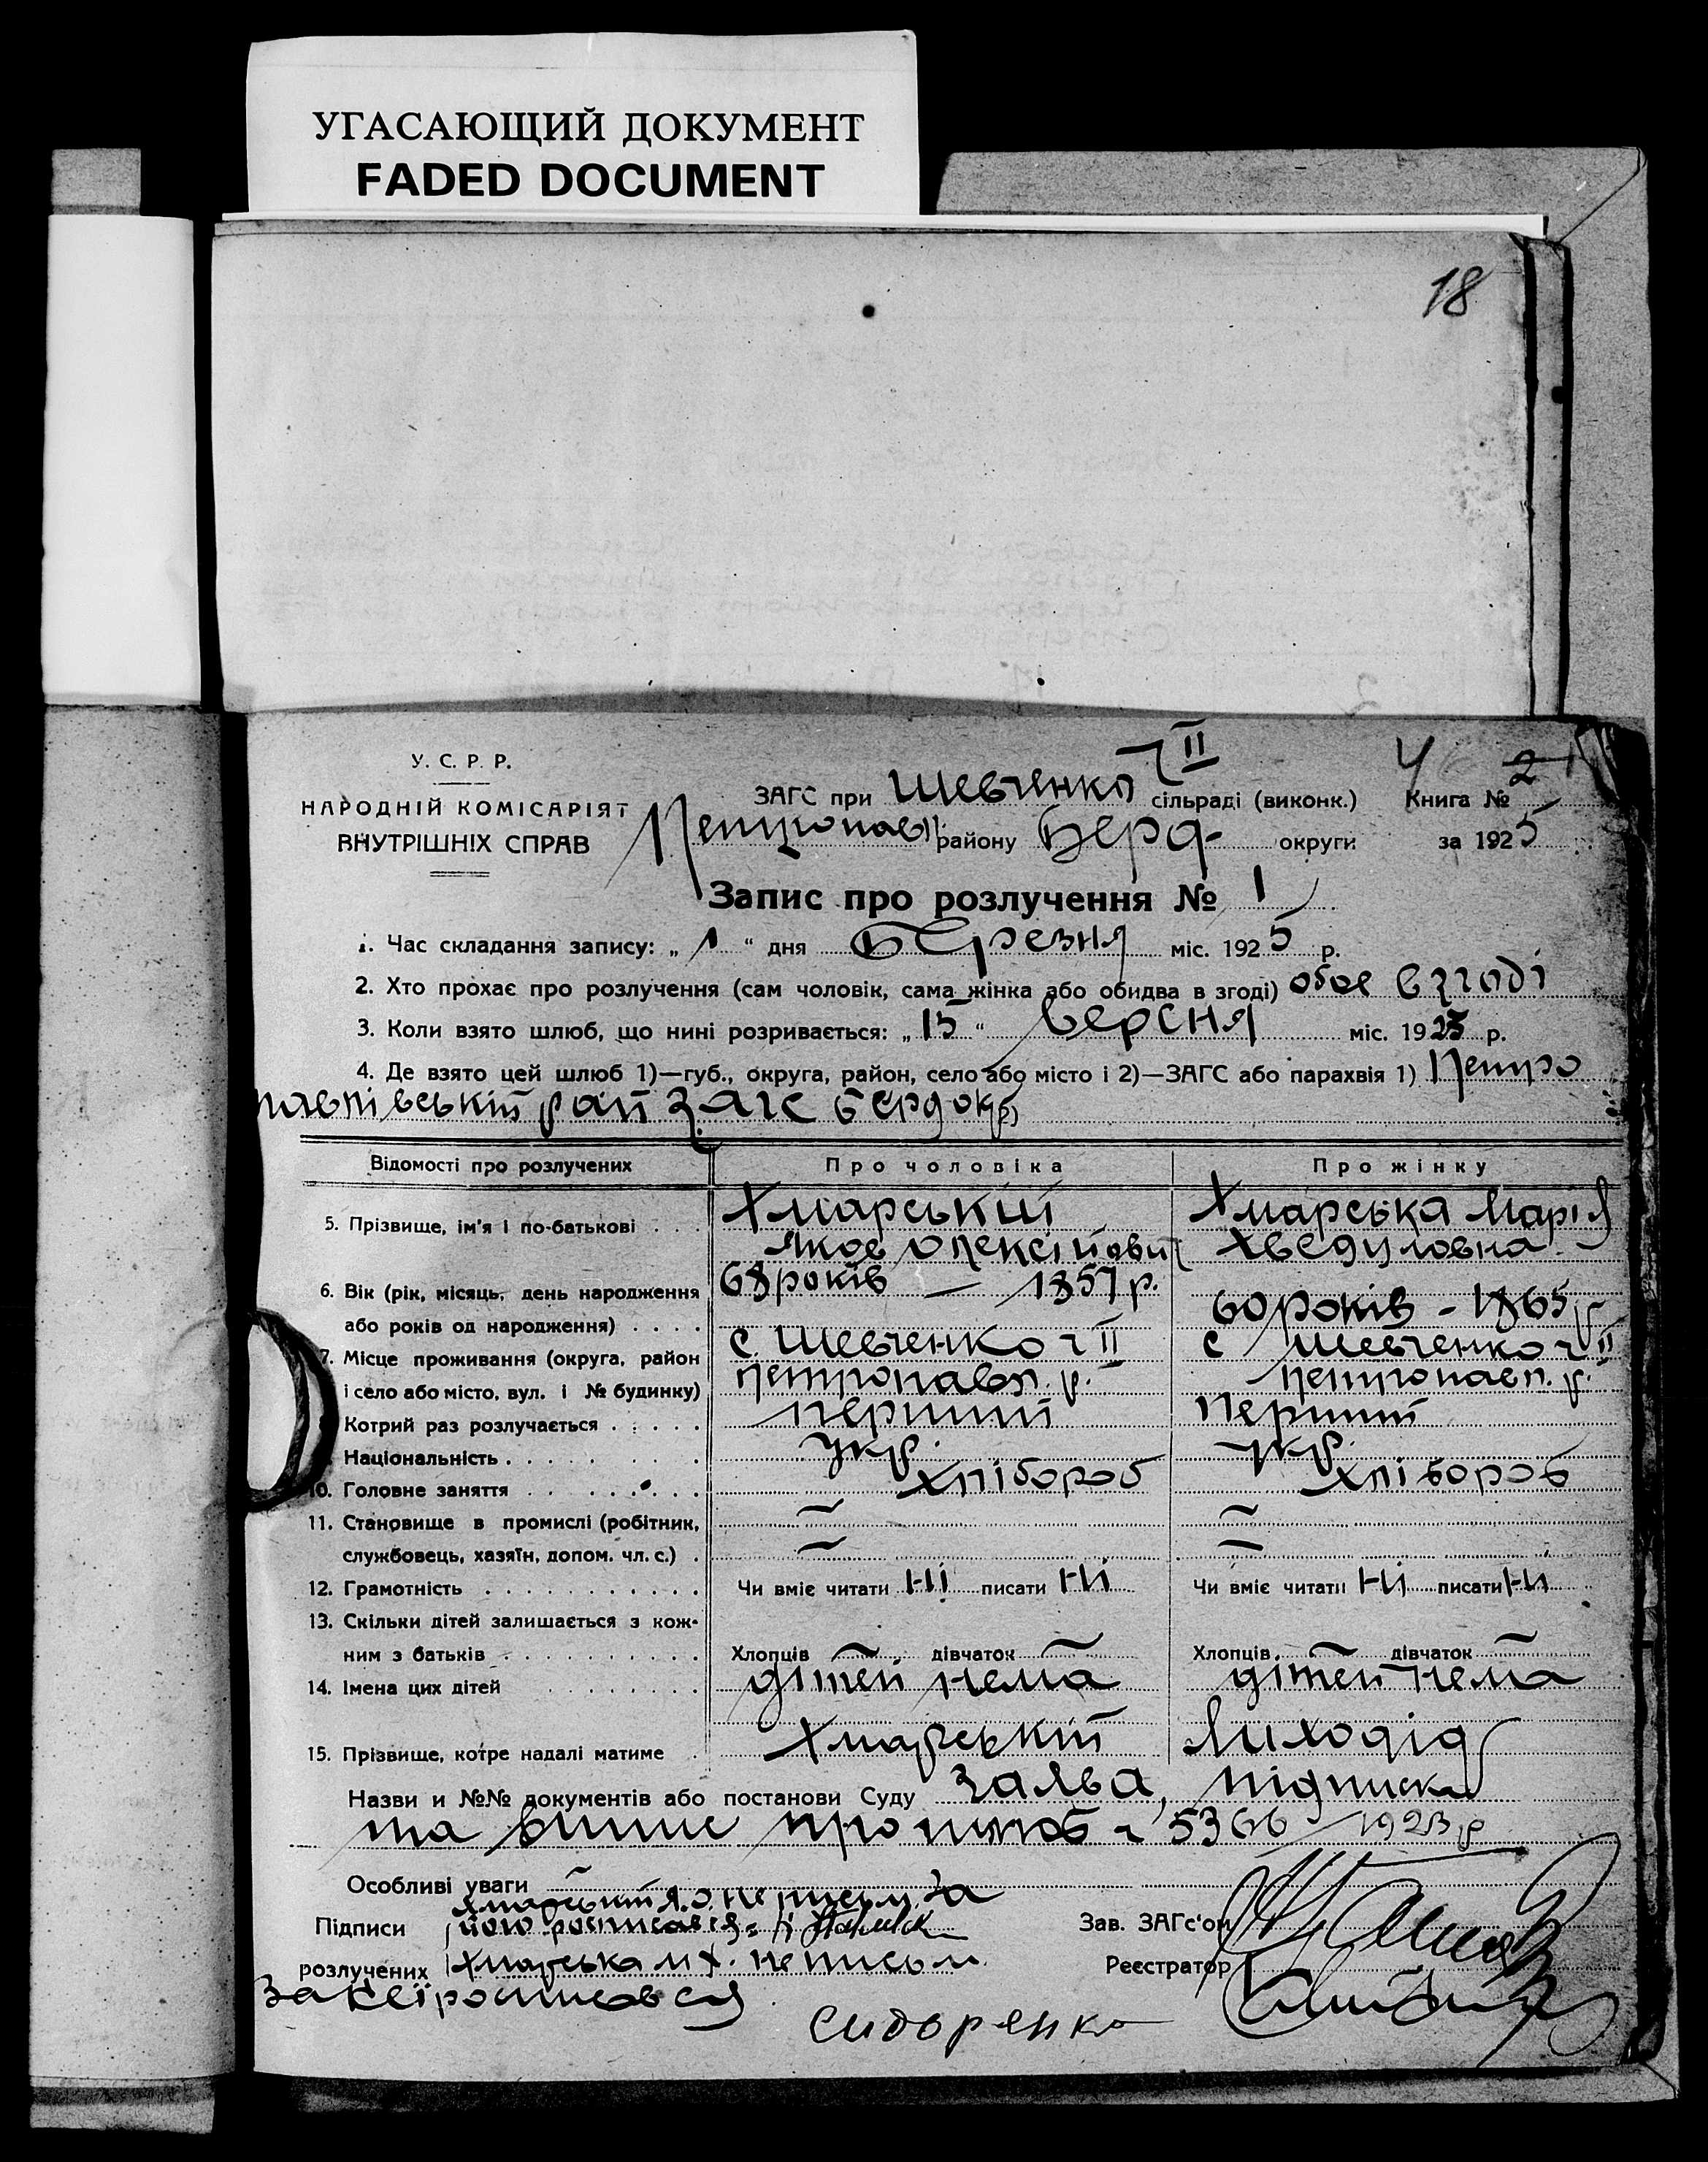 УГАСАЮЩИЙ ДОКУМЕНТ
FADED DOCUMENT
18
У. С. Р. Р.
НАРОДНІЙ КОМІСАРІЯТ
ВНУТРІШНІХ СПРАВ
ЗАГС при Шевченко ч II сільраді (виконк.) Книга № 2
Петропавл. району Берд. округи за 1925
Запис про розлучення № 1
1. Час складання запису: „ 1 “ дня Березня міс. 1925 р.
2. Хто прохає про розлучення (сам чоловік, сама жінка або обидва в згоді) обое в згоді
3. Коли взято шлюб, що нині розривається: „ 15 “ версня міс. 1923 р.
4. Де взято цей шлюб 1)—губ., округа, район, село або місто і 2)—ЗАГС або парахвія 1) Петро
павлівський рай ЗАГС Берд окр
Відомості про розлучених Про чоловіка Про жінку
5. Прізвище, ім'я і по-батькові Хмарський Хмарська Марія
Яков Олексійович Хведуловна
6. Вік (рік, місяць, день народження 68 років — 1857 р.
або років од народження) 60 років - 1865 р
7. Місце проживання (округа, район с. Шевченко ч II с Шевченко ч II
і село або місто, вул. і № будинку) петропавл. р. петропавл. р.
8. Котрий раз розлучається перший перший
9. Національність укр. укр.
10. Головне заняття хлібороб хлібороб
11. Становище в промислі (робітник, —  —
службовець, хазяїн, допом. чл. с.) —  —
12. Грамотність Чи вміє читати Ні писати Ні Чи вміє читати Ні писати Ні
13. Скільки дітей залишається з кож-
ним з батьків Хлопців — дівчаток — Хлопців — дівчаток —
14. Імена цих дітей дітей нема дітей нема
15. Прізвище, котре надалі матиме Хмарський Лиходід
Назви и №№ документів або постанови Суду Заява, підписка
та випис про шлюб ч 5366 1923 р
Особливі уваги
Хмарський Я. О. не письм. За
Підписи його росписався
розлучених Хмарська М Х. не письм.
За неї росписався
Сидоренко
Зав. ЗАГс'ом
Реєстратор